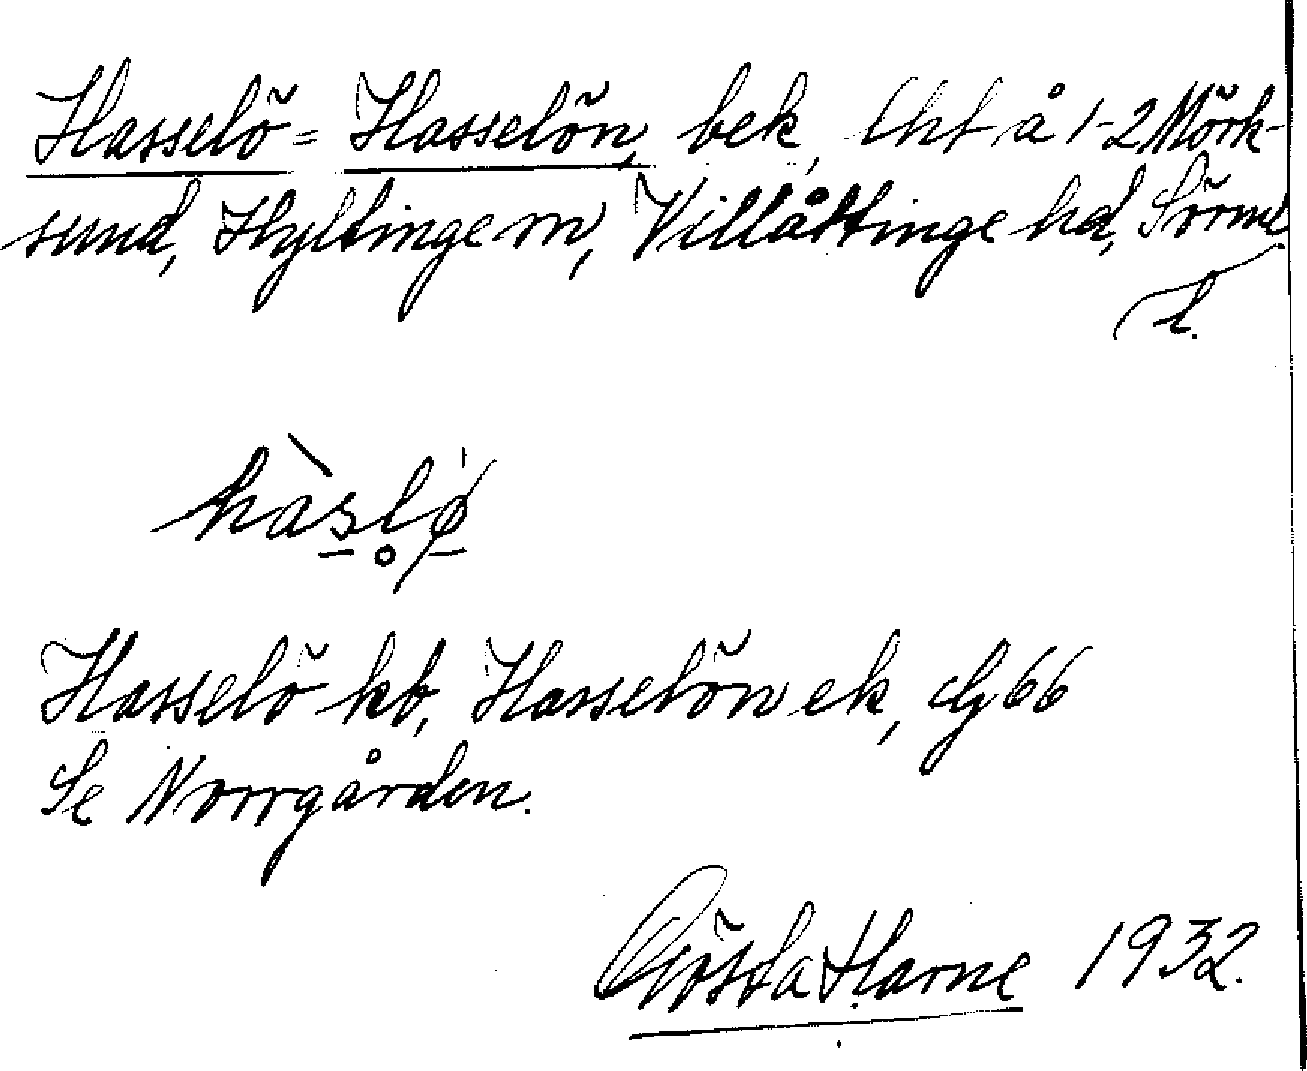 Hasselö = Hasselön, bek, lht å 1-2 Mörk-
sund, Hyltinge sn, Villåttinge hd, Sörml.
l.
hàslǿ
Hasselö kb, Hasselön ek, Cg 66
Se Norrgården.
Gösta Harne 1932.